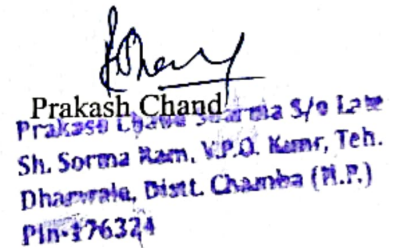 Prakash Chand
Prakash Chand Sharma S/o Late
Sh. Sorma Ram, V.P.O. Kumr, Teh.
Dharwala, Distt. Chamba (H.P.)
Pin-176324